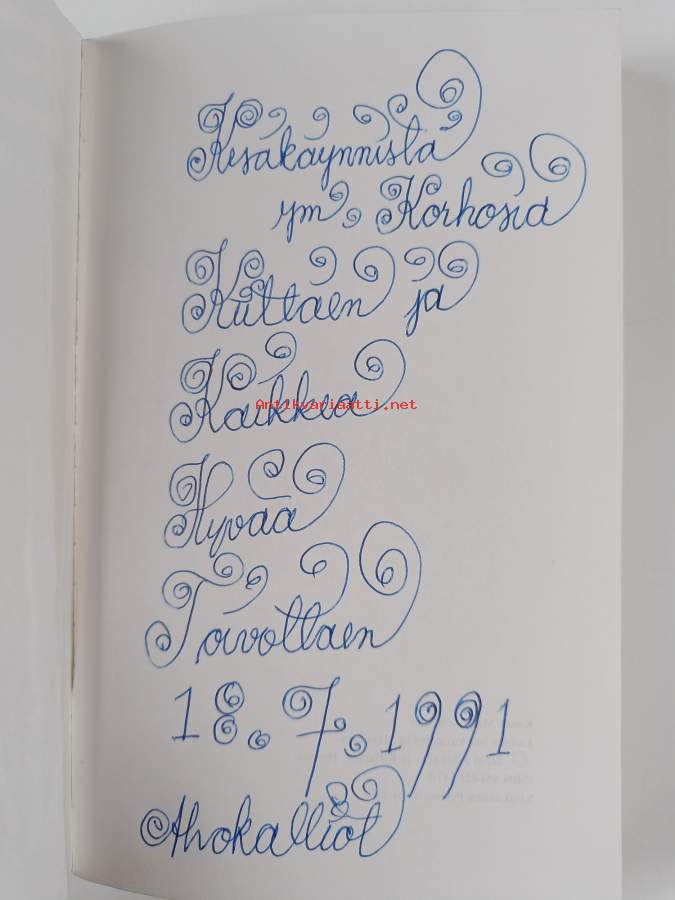 Kesäkäynnistä
ym. Korhosia
Kiittäen ja
Kaikkea
Antikvariaatti.net
Hyvää
Toivottaen
18.7.1991
Ahokalliot